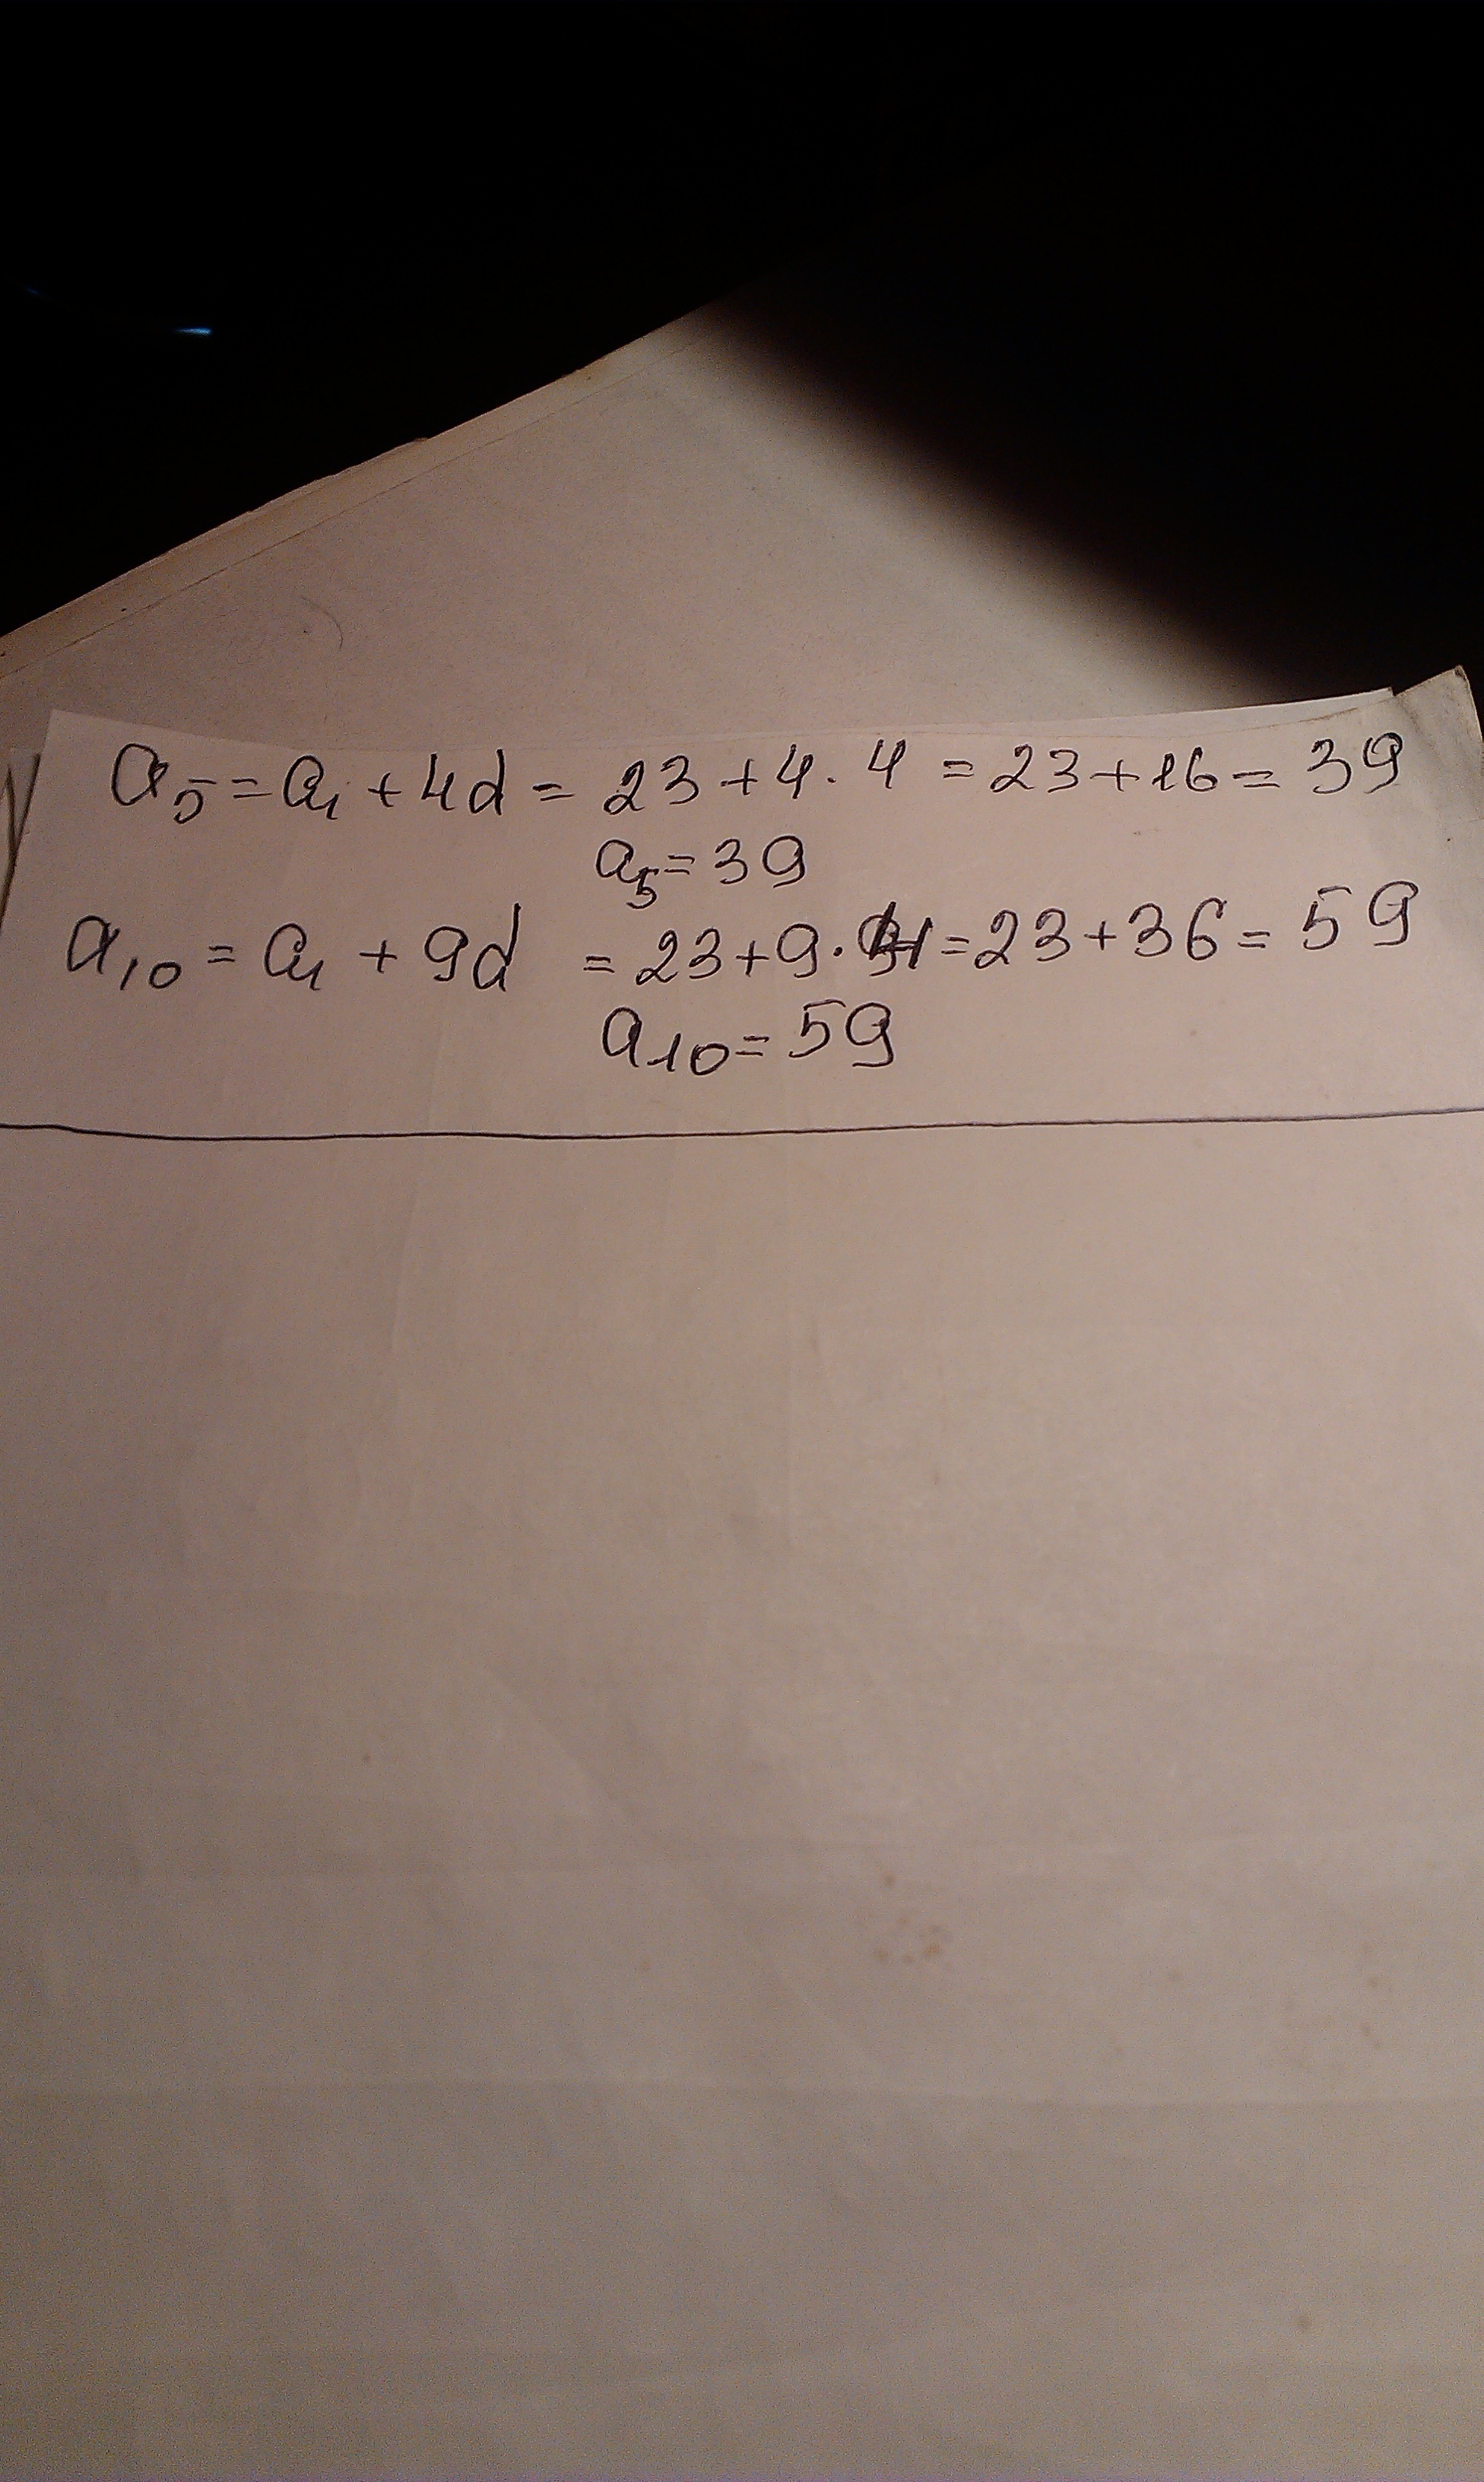 a₅ = a₁ + 4d = 23 + 4 · 4 = 23 + 16 = 39
a₅ = 39
a₁₀ = a₁ + 9d = 23 + 9 · 4 = 23 + 36 = 59
a₁₀ = 59